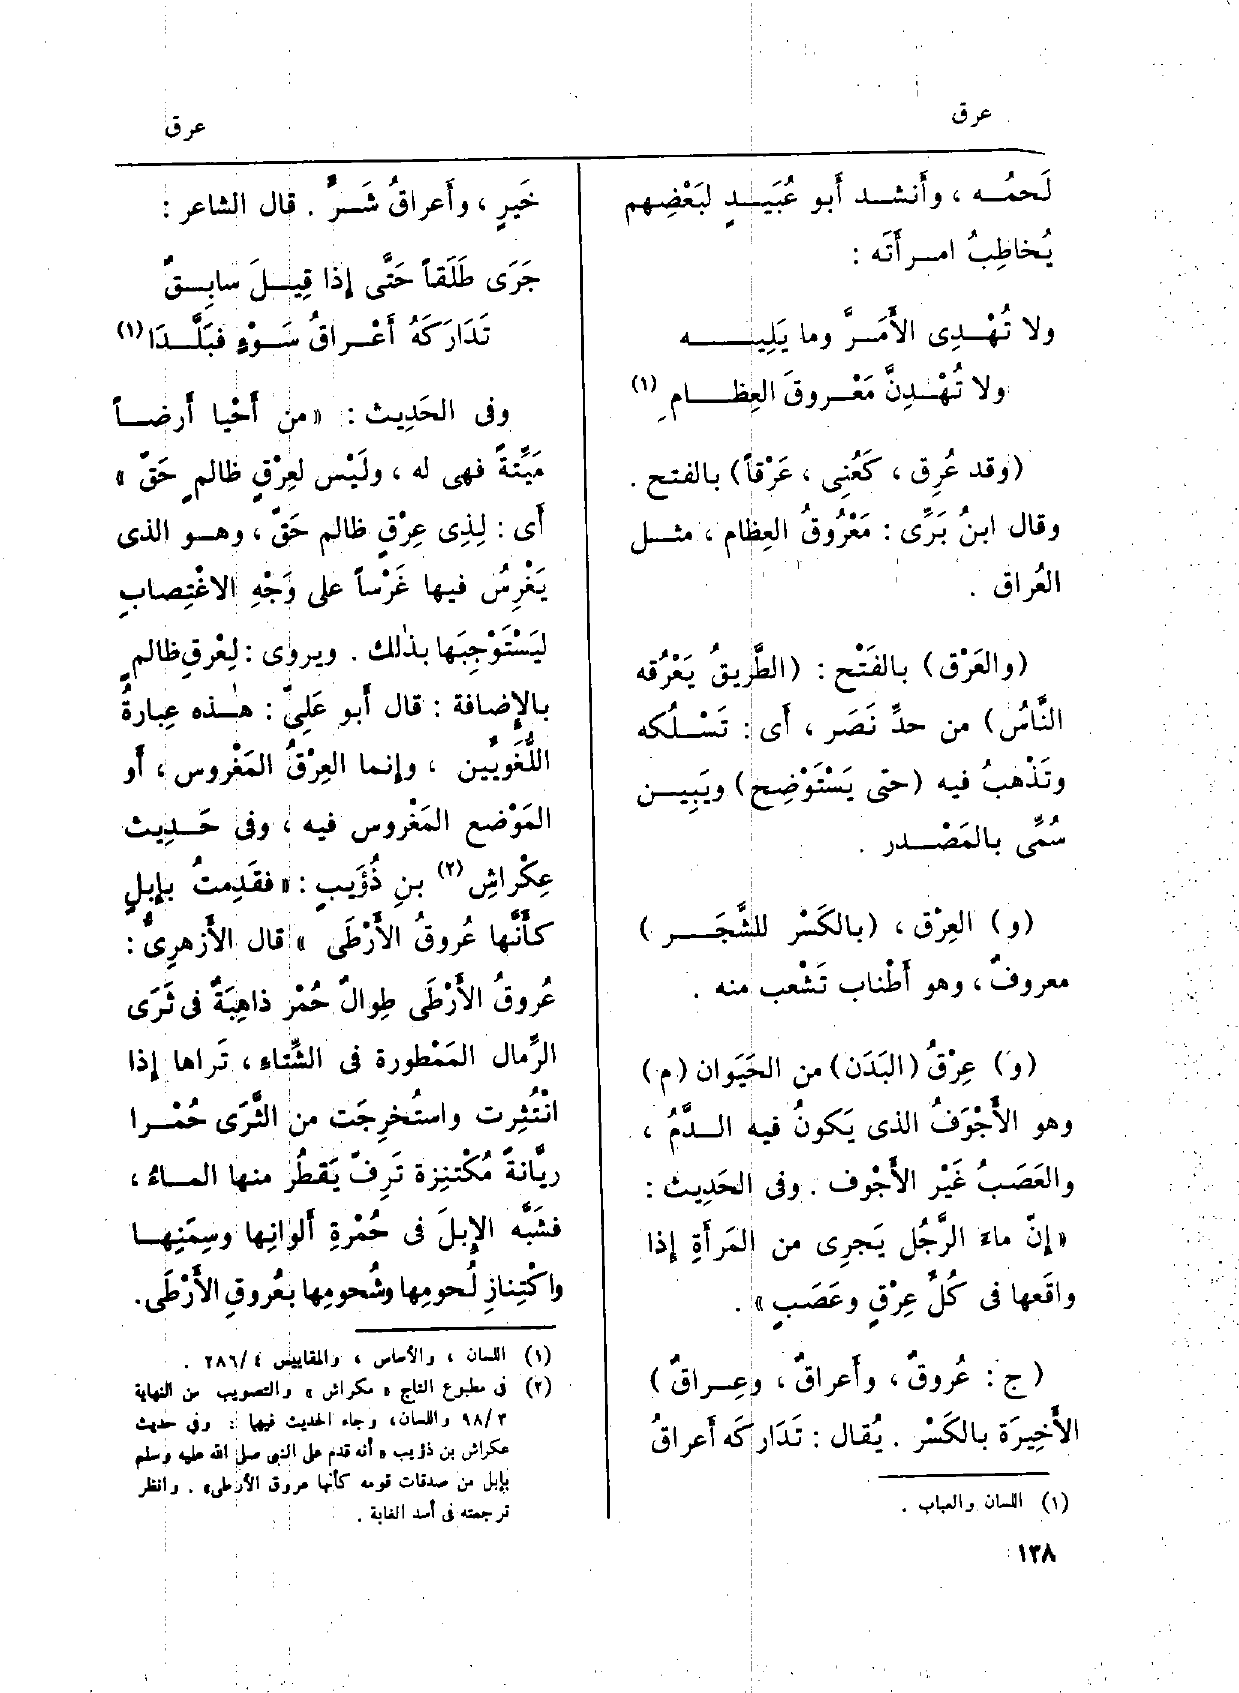 عرق
عرق
لَحمُـه ، وأَنشـد أَبو عُبَيـدٍ لبَعْضِهم
يُخاطِبُ امـرأَتَه :
ولا تُهْـدِى الأَمَـرَّ وما يَلِيـــه
ولا تُهْـدِنَّ مَعْـروقَ العِظـامِ (١)
(وقد عُرِق ، كَعُنِى ، عَرْقاً) بالفتح .
وقال ابنُ بَرِّى : مَعْرُوقُ العِظام ، مثـل
العُراق .
(والعَرْق) بالفَتْح : (الطَّرِيقُ يَعْرُقه
النَّاسُ) من حدِّ نَصَر ، أَى : تَسْـلُكه
وتَذْهبُ فيه (حتى يَسْتَوْضِح) ويَبِيـن
سُمِّى بالمَصْـدر .
(و) العِرْق ، (بالكَسْر للشَّجَـر )
معروفٌ ، وهو أَطْناب تَشْعب منه .
(و) عِرْقُ (البَدَن) من الحَيَوان (م)
وهو الأَجْوَفُ الذى يَكونُ فيه الـدَّمُ ،
والعَصَبُ غَيْر الأَجْوف . وفى الحَدِيث :
« إنّ ماءَ الرَّجُل يَجرِى من المَرأَةِ إذا
واقَعها فى كُلِّ عِرْقٍ وعَصَبٍ » .
( ج : عُروقٌ ، وأَعراقٌ ، وعِـراقٌ )
الأَخِيرَة بالكَسْر . يُقال : تَدَاركَه أَعراقُ
(١) اللسان والعباب .
١٣٨
خَيرٍ ، وأَعراقُ شَـرٍّ . قال الشاعر :
جَرَى طَلَقاً حَتَّى إذا قِيـلَ سابِـقٌ
تَدَارَكَهُ أَعْـراقُ سَـوْءٍ فبَلَّـدَا (١)
وفى الحَدِيث : « من أَحْيا أَرضـاً
مَيِّتةً فهى له ، ولَيْس لعِرْقٍ ظالمٍ حَقّ »
أَى : لِذِى عِرْقٍ ظالم حَقّ ، وهـو الذى
يَغْرِسُ فيها غَرْساً على وَجْهِ الاغْتِصابِ
ليَسْتَوْجِبَها بذٰلك . ويروى : لِعْرقِ ظالمٍ
بالإِضافة : قال أَبو عَلِىّ : هـٰذه عِبارةُ
اللُّغَويِّين ، وإنما العِرْقُ المَغْروس ، أَو
المَوْضع المَغْروس فيه ، وفى حَـدِيث
عِكْراشِ (٢) بنِ ذُؤَيبٍ : « فقَدِمتُ بإبلٍ
كأَنَّها عُروقُ الأَرْطَى » قال الأَزهرىُّ :
عُروقُ الأَرْطَى طِوالٌ حُمْر ذاهِبَةٌ فى ثَرَى
الرِّمال المَمْطورة فى الشّتاء ، تَراها إذا
انْتُثِرت واستُخرِجَت من الثَّرَى حُمْـرا
ريَّانةً مُكْتنِزة تَرِفّ يَقطُر منها المـاءُ ،
فشَبَّه الإبلَ فى حُمْرةِ أَلوانِها وسِمَنِهـا
واكْتِنازِ لُحومِها وشُحومِها بعُروقِ الأَرْطَى.
(١) اللسان ، والأساس ، والمقاييس ٢٨٦/٤ .
(٢) فى مطبوع التاج « مكراش » والتصويب من النهاية
٩٨/٣ واللسان، وجاء الحديث فيها : وفى حديث
عكراش بن ذؤيب « أنه قدم على النبى صلى الله عليه وسلم
بإبل من صدقات قومه كأنها عروق الأرطى» . وانظر
ترجمته فى أسد الغابة .